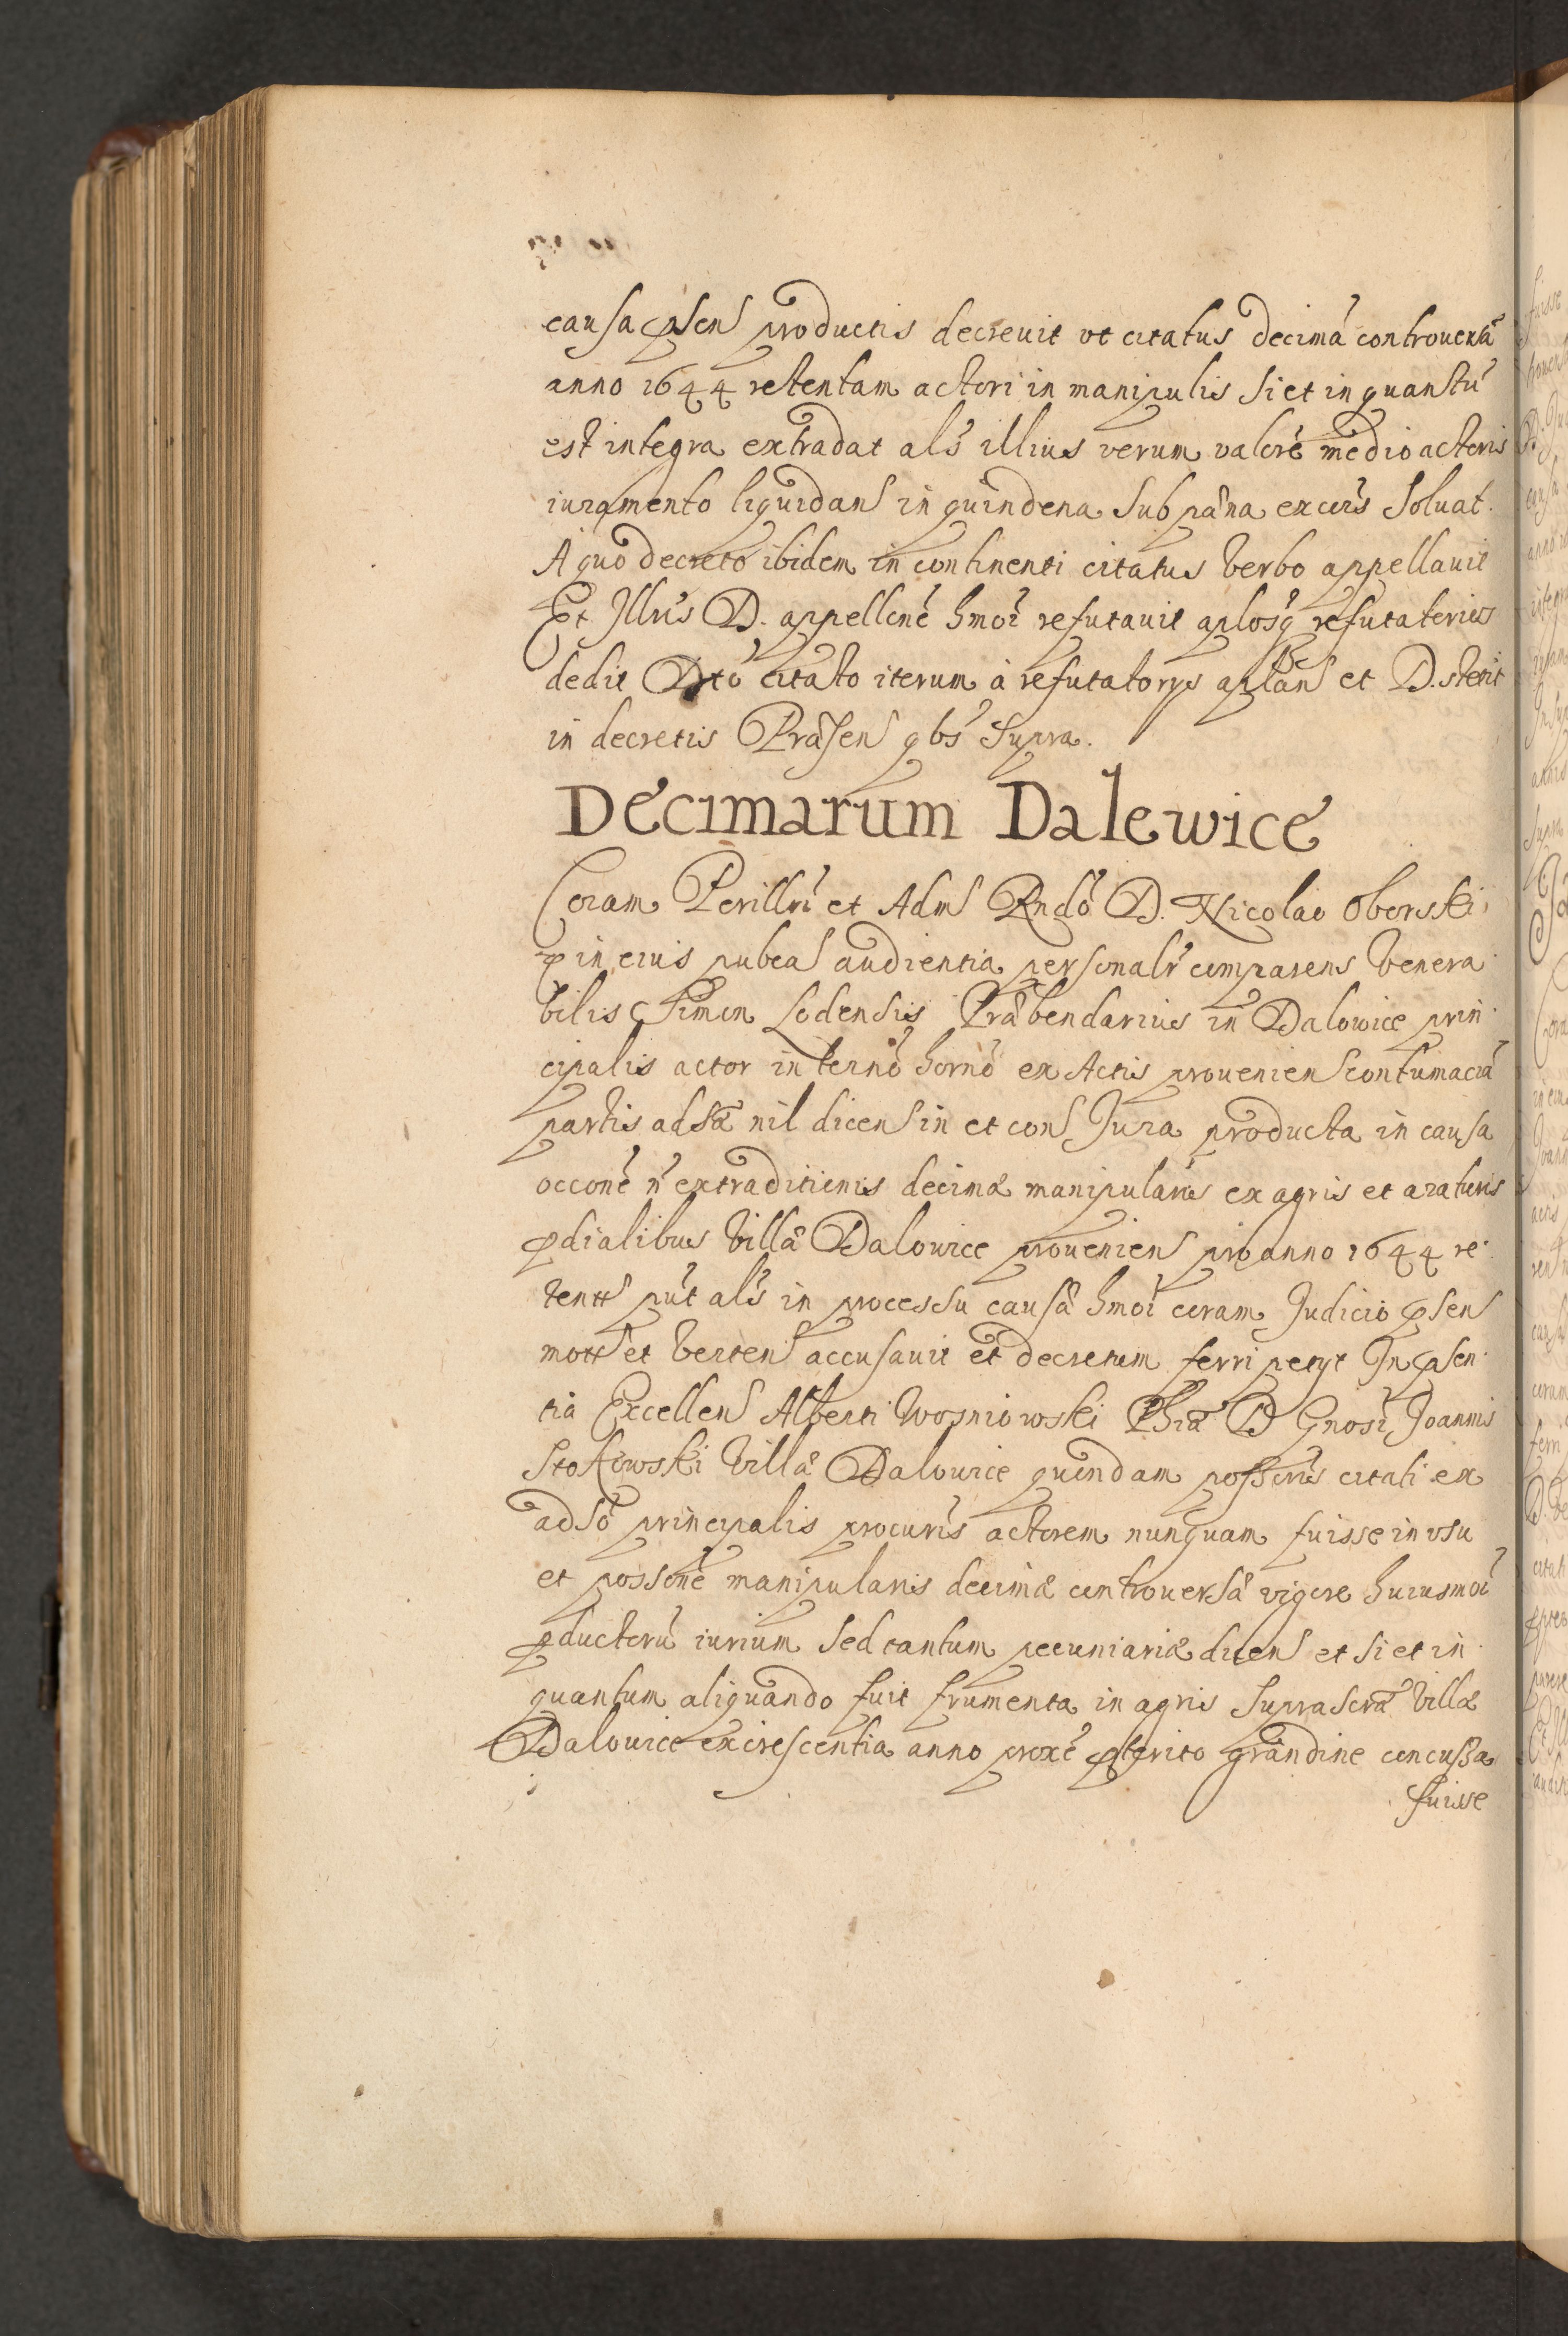 causa pñsen productis decrevit ut citatus decimã controversã
anno 1644 retentam actori in manipulis si et in quantũ
est integra extradat als illius verum valorẽ medio actoris
iuramento liquidan in quindena sub pæna excõis soluat.
A quo decreto ibidem in continenti citatus verbo appellavit
Et Illris D. appellõnẽ hmoi refutavit aplosq refutatorios
dedit Dto citato iterum à refutatorys aplan et D. stetit
in decretis Præsen qbs supra.
Decimarum Dalewice
Coram Perillri et Adm Rndo D. Nicolao Oborski
p in eius pubca audientia personalr comparens Venera
bilis Simon Lodensis Præbendarius in Dalowice prin
cipalis actor in termõ hornõ ex Actis provenien contumaciã
partis adsæ nil dicen in et con Jura producta in causa
occõne ñ extraditionis decimæ manipularis ex agris et araturis
pdialibus Villæ Dalowice provenien pro anno 1644 re
tentt put als in processu causæ hmoi coram Judicio psen
mott et verten accusavit et decretum ferri petyt In psen
tia Excellen Alberti Wosniowski Phiæ D Gnosi Joannis
Stokowski Villæ Dalowice quendam possoris citati ex
adso principalis procuris actorem nunquam fuisse in usu
et possonẽ manipularis decimæ controversæ vigore huiusmoi
pductorũ iurium sed tantum pecuniariæ dicen et si et in
quantum aliquando fuit frumenta in agris suprascræ Villæ
Dalowice excrescentia anno proxẽ pterito grandine concussa
fuisse